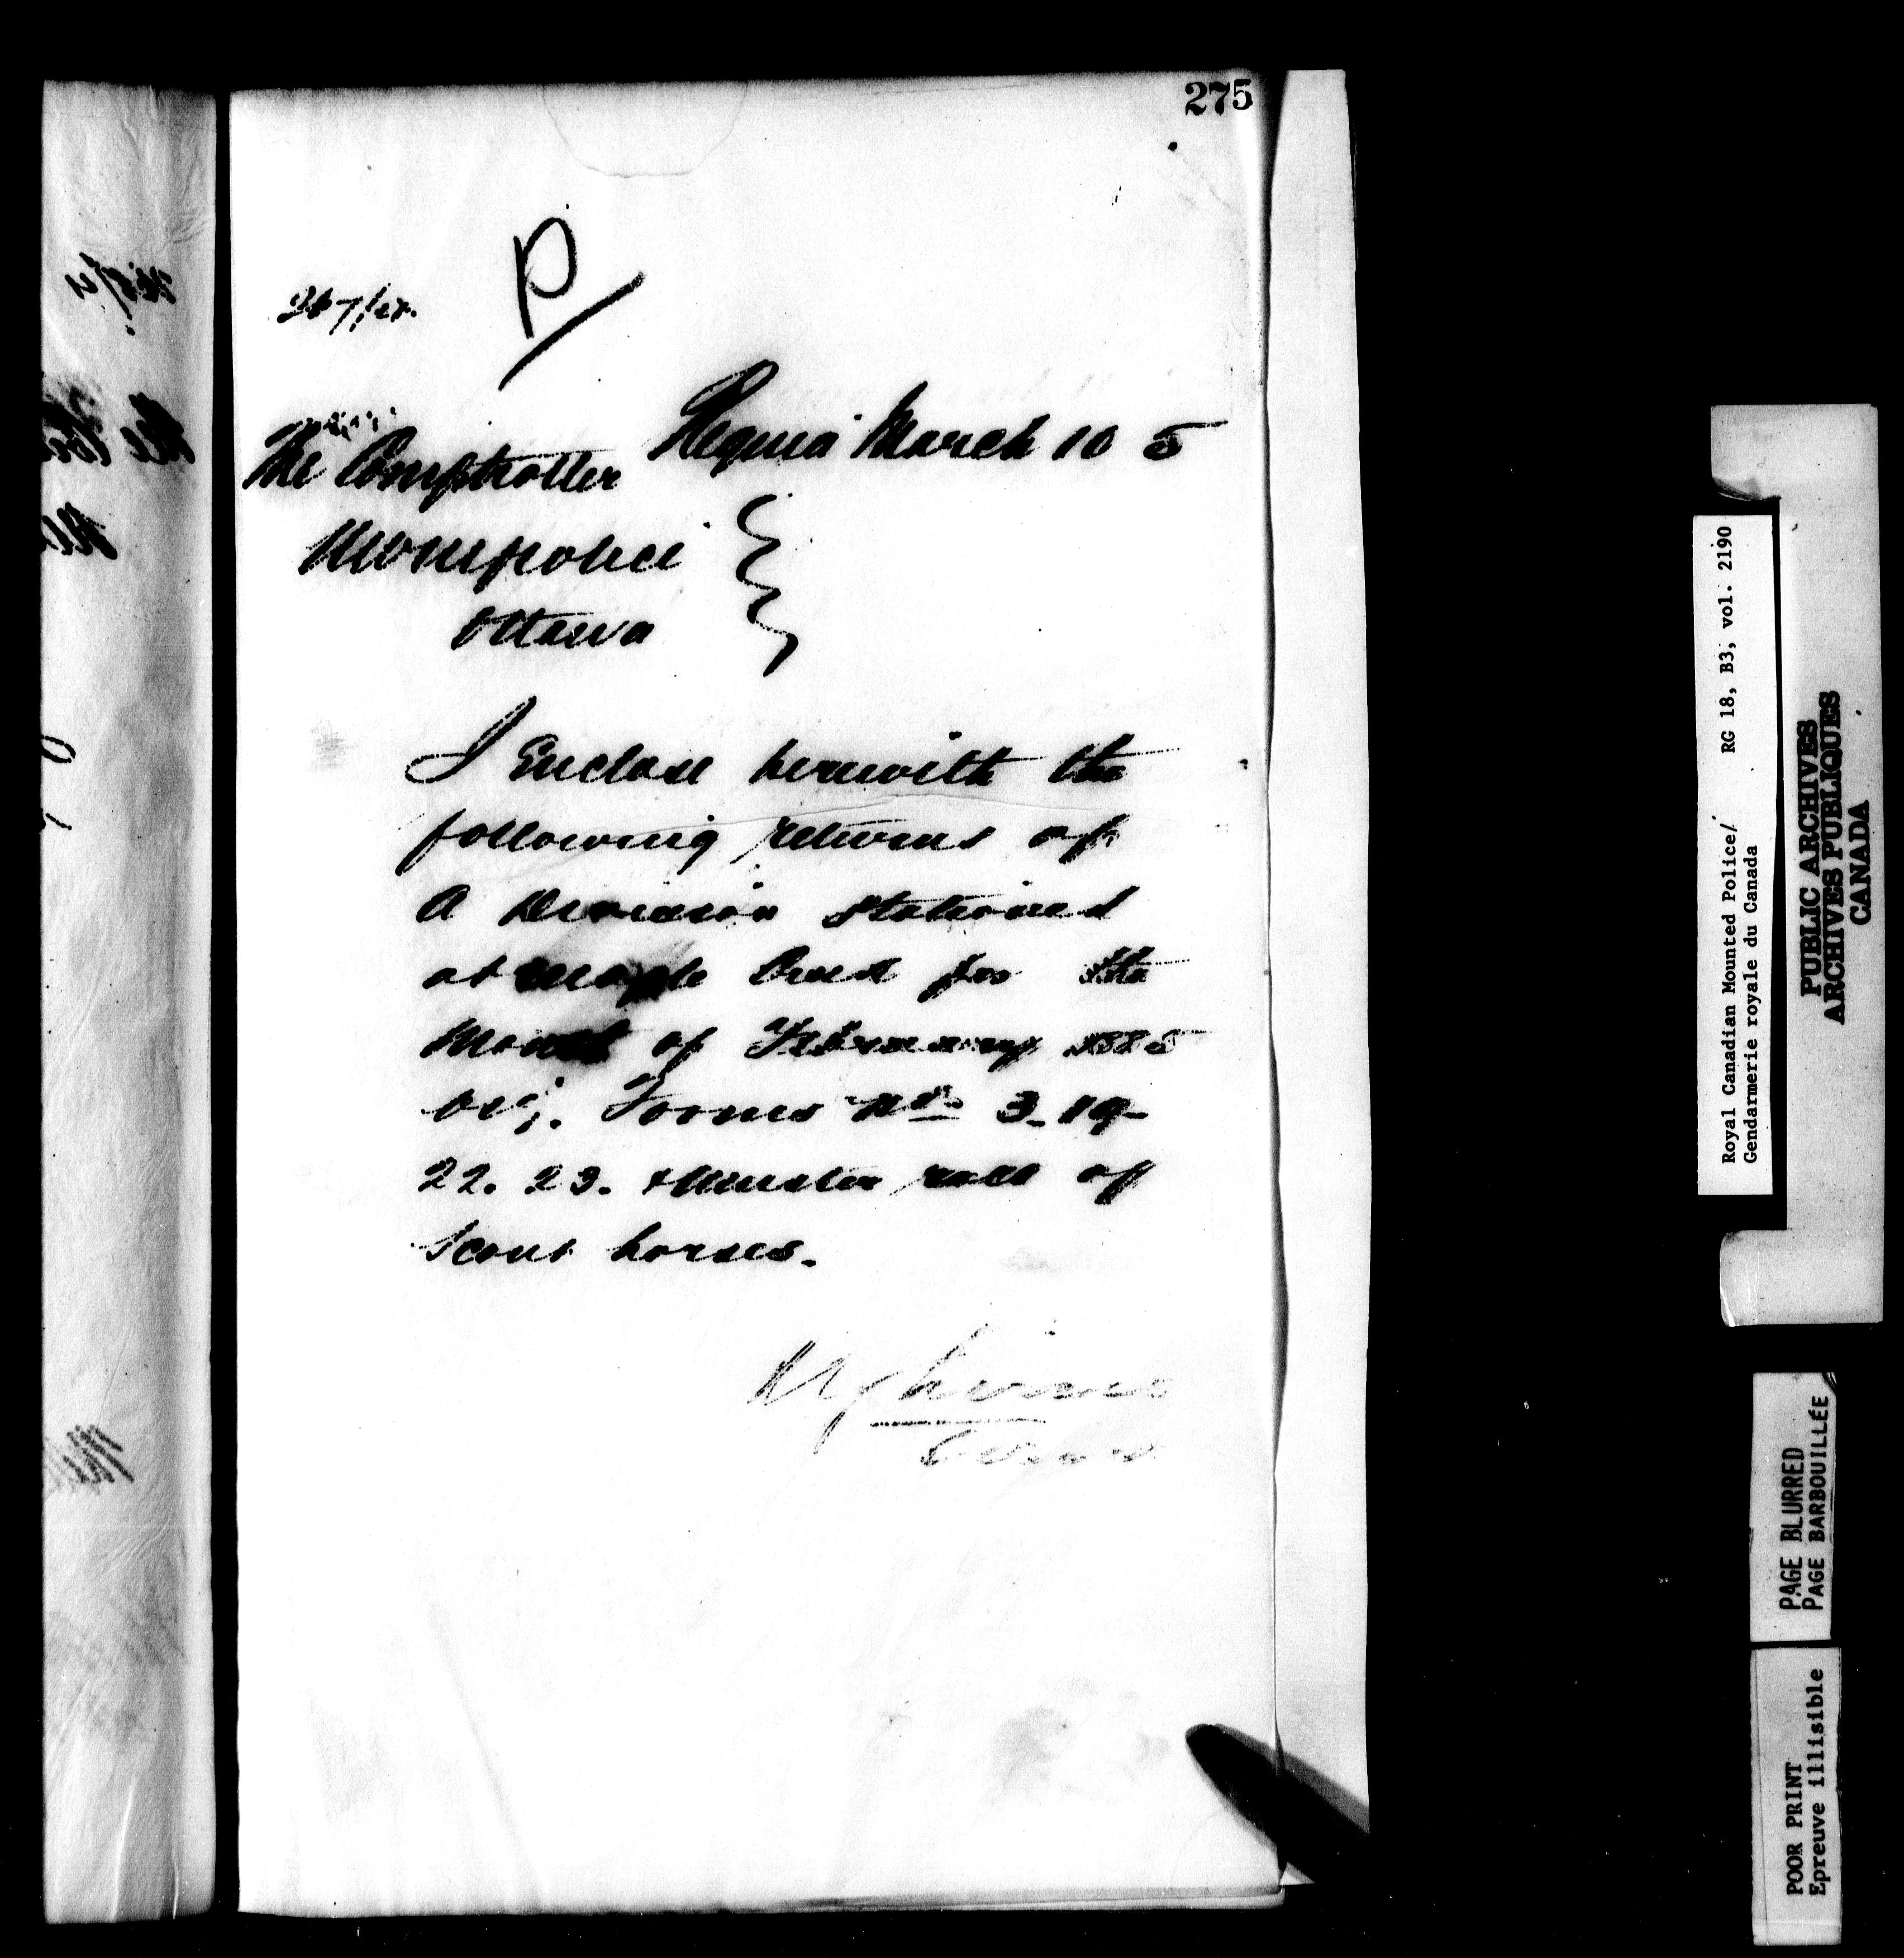 275
P
Regina March 10 5
The Comptroller
Ottawa
I Enclose herewith the
following returns of
A Division stationed
at Maple Creek for the
Month of February 1885
viz. Forms Nos 3_19_
22. 23. & Muster roll of
Scout horses.
AGIrvine
Royal Canadian Mounted Police/ RG 18, B3, vol. 2190
Gendarmerie royale du Canada
PUBLIC ARCHIVES
ARCHIVES PUBLIQUES
CANADA
PAGE BLURRED
PAGE BARBOUILLÉE
POOR PRINT
Epreuve illisible